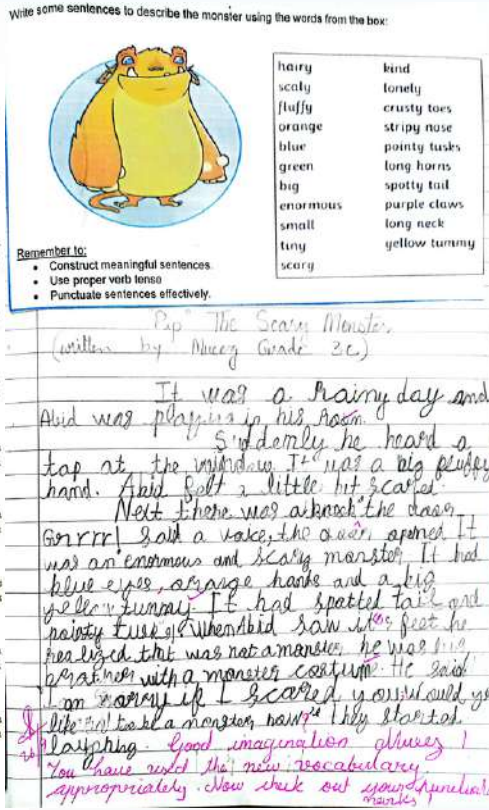 Write some sentences to describe the monster using the words from the box:
hairy kind
scaly lonely
fluffy crusty toes
orange stripy nose
blue pointy tusks
green long horns
big spotty tail
enormous purple claws
small long neck
tiny yellow tummy
scary
Remember to:
• Construct meaningful sentences.
• Use proper verb tense
• Punctuate sentences effectively.
"Pip" The Scary Monster
(written by Mueez Grade 3c)
It was a rainy day and
Abid was playing in his room.
Suddenly he heard a
tap at the window. It was a big fluffy
hand. Abid felt a little bit scared.
Next there was a knock the door
Grrrr! said a voice, the door opened It
was an enormous and scary monster. It had
blue eyes, orange hands and a big
yellow tummy. It had spotted tail and
pointy tusks. When Abid saw its feet he
realized that was not a monster he was his
brather with a monster costum. He said
I am sorry if I scared you would yo
like to be a monster now?" They started
laughing. Good imagination Mueez!
You have used the new vocabulary
appropriately. Now check out your punctuation
marks